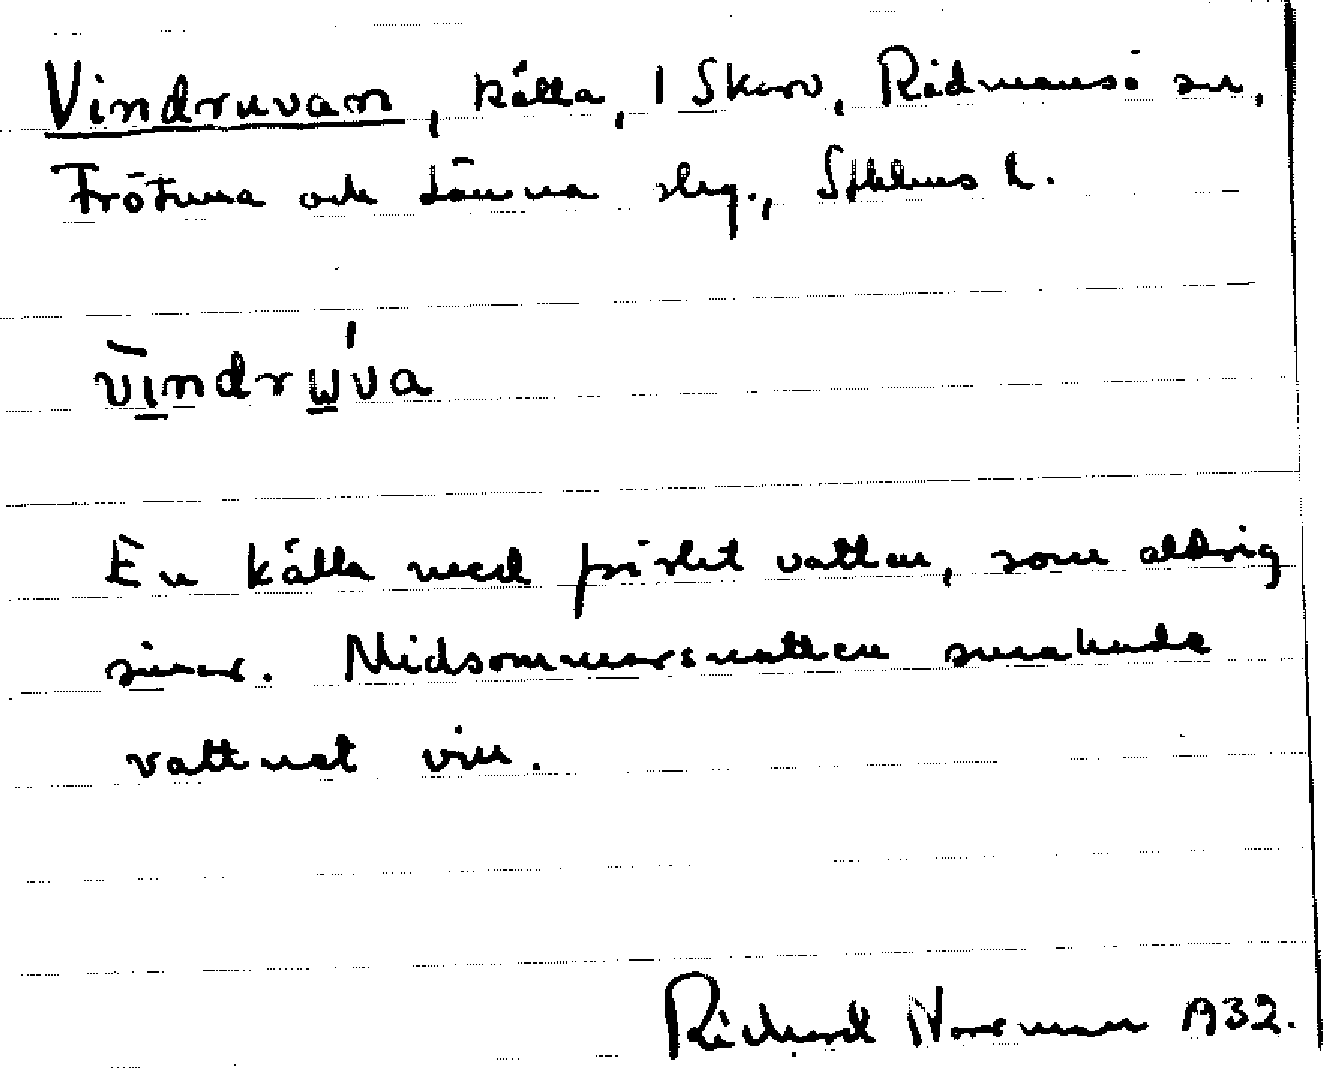 Vindruvan, källa, 1 Skarv, Rådmansö sn,
Frötuna och Länna slg., Sthlms l.
vindruva
En källa med friskt vatten, som aldrig
sinar. Midsommarsnatten smakade
vattnet vin.
Richard Norrman 1932.